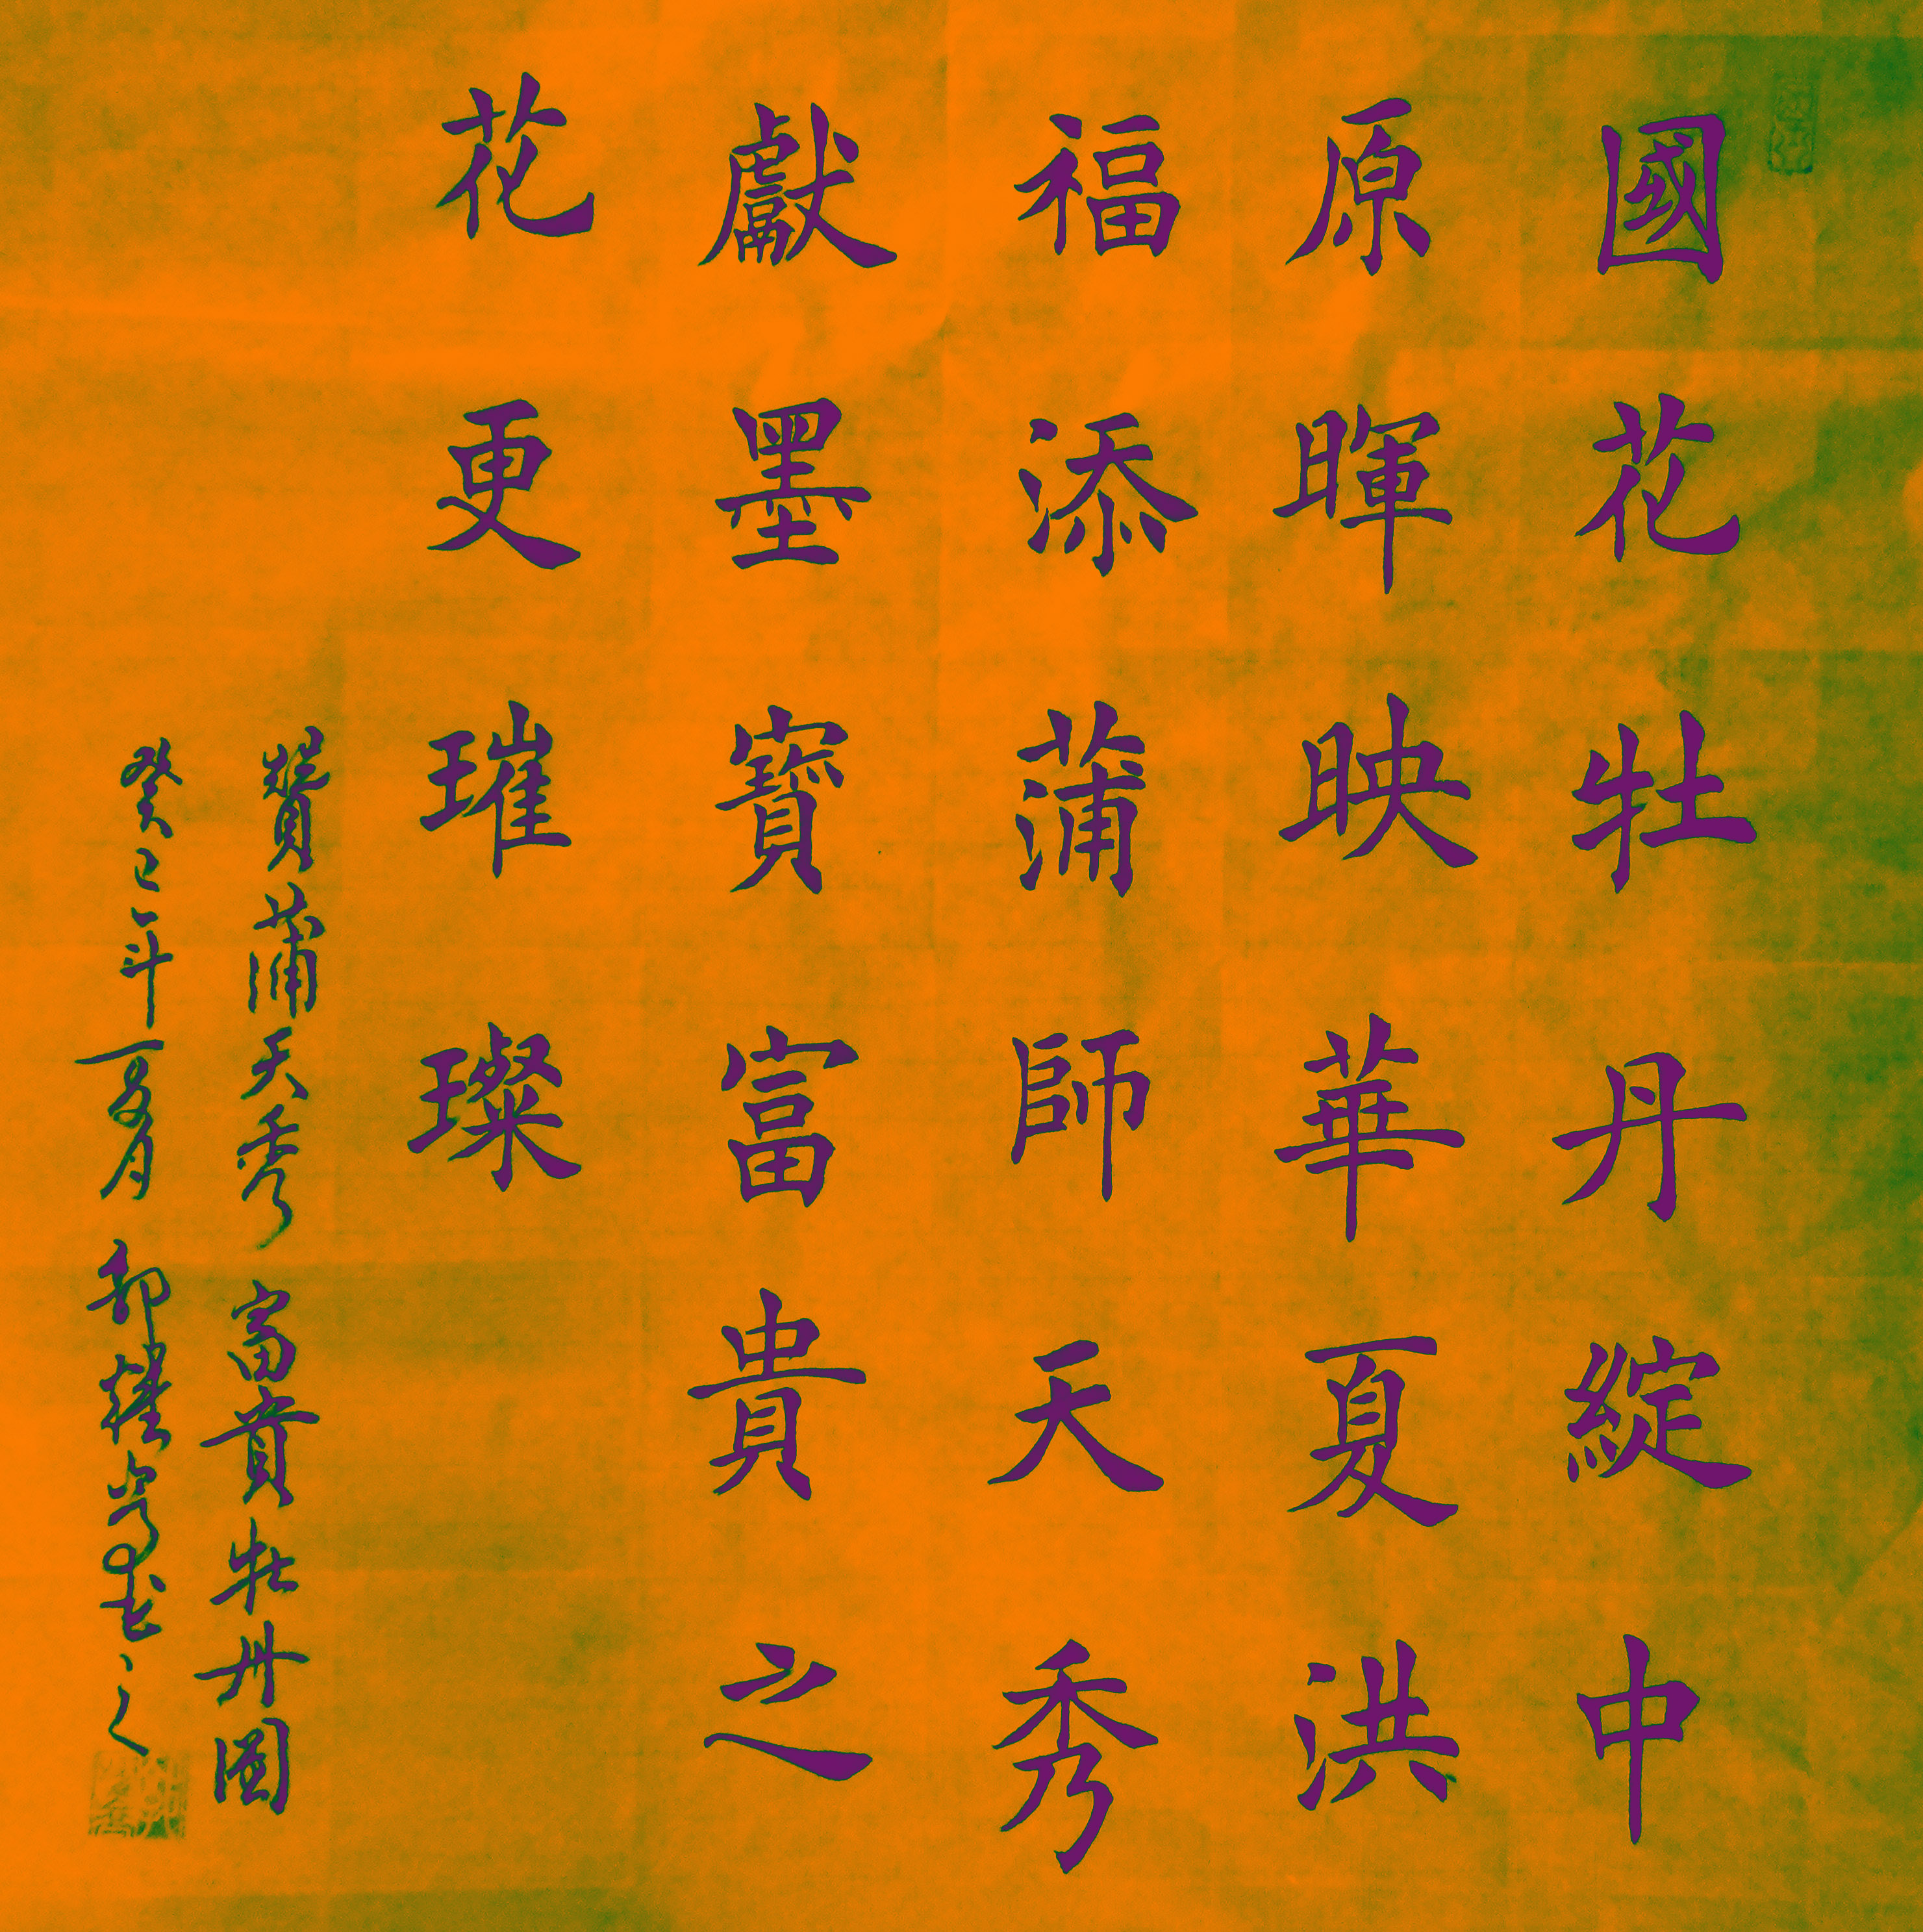 國花牡丹綻中
原暉映華夏洪
福添蒲師天秀
獻墨寶富貴之
花更璀璨
贊蒲天秀富貴牡丹圖
癸巳年夏月